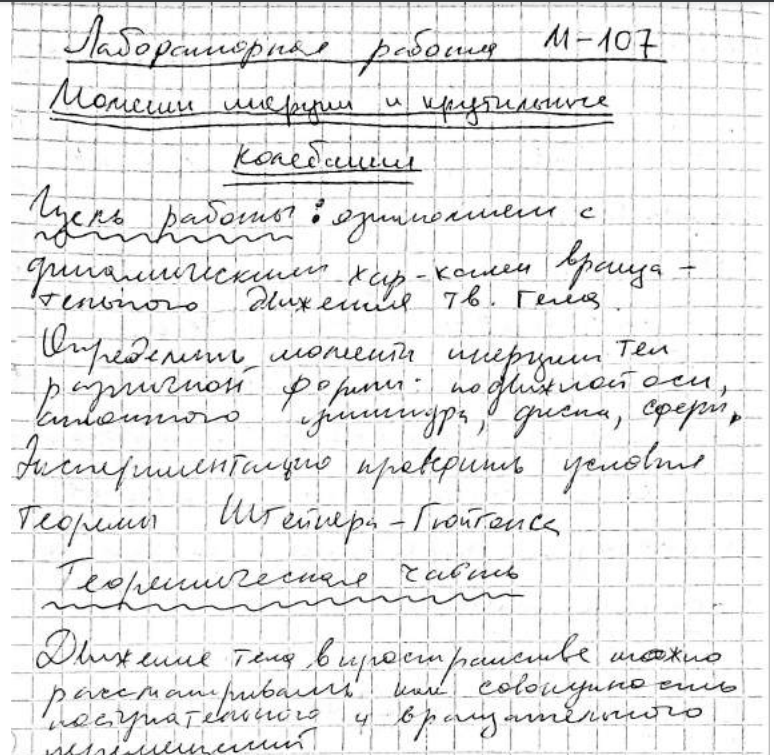 Лабораторная работа М-107
Момент инерции и крутильные
колебания
Цель работы: ознакомление с
динамическими хар-ками враща-
тельного движения тв. тела.
Определить моменты инерции тел
различной формы: подвижной оси,
сплошного цилиндра, диска, сферы,
Экспериментально проверить условия
теоремы Штейнера-Гюйгенса
Теоретическая часть
Движение тела в пространстве можно
рассматривать как совокупность
поступательного и вращательного
перемещений